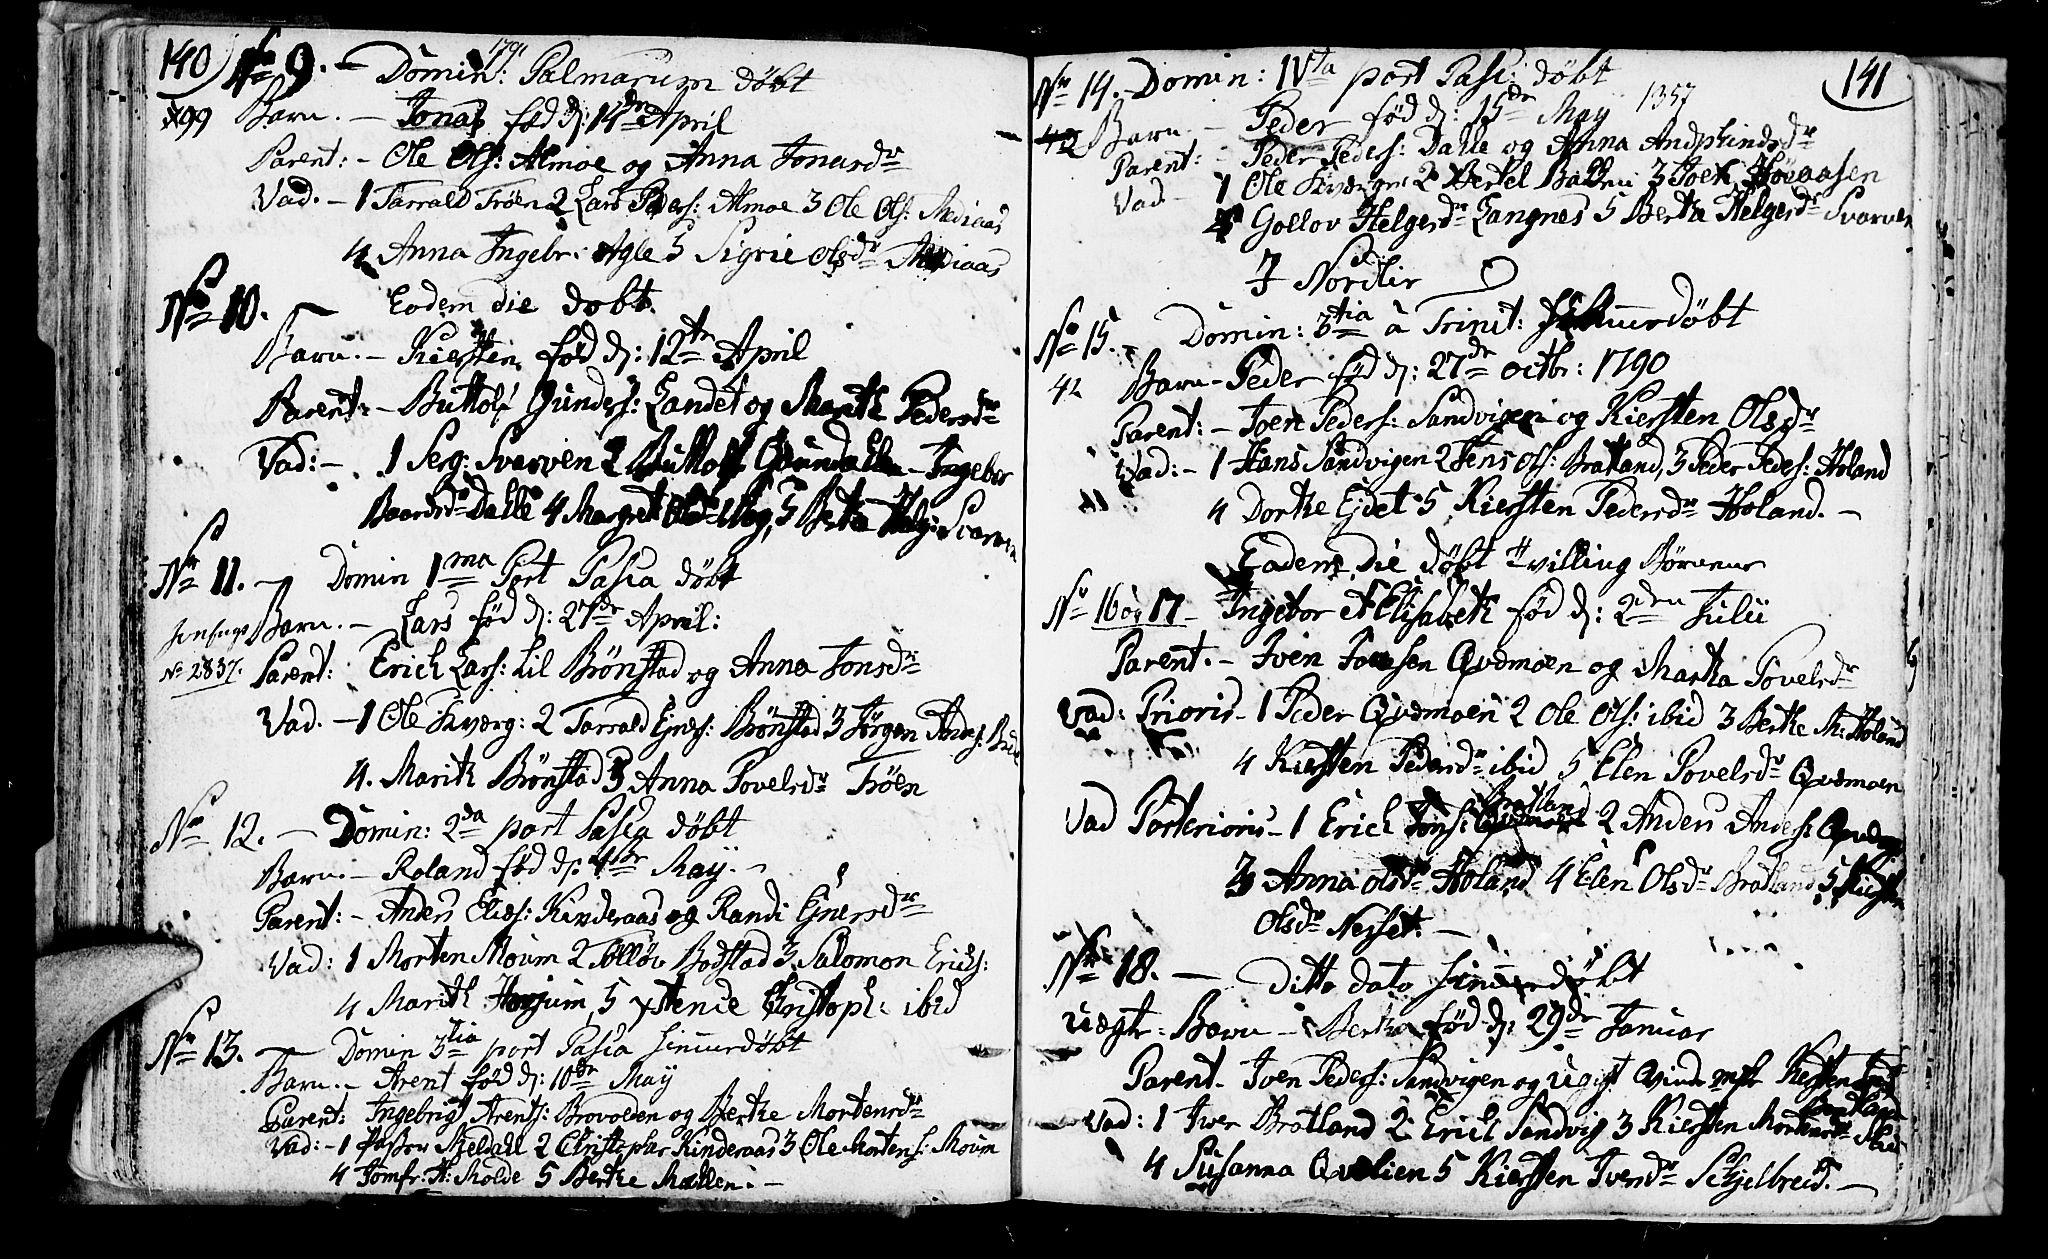 140
No 9. - Domin: Palmarum døbt
1791
399 Barn. - Jonas fød d: 14de April
Parent: - Ole Ols: Almoe og Anna Jonasdr
Vad. - 1 Tarrald Tröen 2 Lars Peders: Almoe 3 Ole Ols: Mediaas
4 Anna Ingebr: Agle 5 Sigrie Olsdr Mediaas
No 10. Eodem die døbt.
Barn. - Kiersten fød d: 12te April
Parent: - Buttolf Gunders: Landet og Marith Pedersdr
Vad: - 1 Serg: Svarven 2 Buttolf Ingebor
Baardsdr Dalle 4 Margret 5 Berta Helg: Svarven
No 11. - Domin 1ma Post Pasca døbt
Barn. - Lars fød d: 27de April:
No 2837. Parent: Erich Lars: Lil Brönstad og Anna Jonsdr
Vad. - 1 Ole Hværg: 2 Tarrald Ejners: Brönstad 3 Jörgen Anders:
4. Marith Brönstad 5 Anna Povelsdr Tröen
No 12. - Domin: 2da post Pasca døbt
Barn. - Roland fød d: 4de May. -
Parent: - Anders Elias: Kinderaas og Randi Ejnersdr
Vad: 1 Morten Moum 2 Tölløv Bodstad 3 Salomon Erics:
4 Marith Horjum 5 Christoph: ibid
No 13. Domin 3tia post Pasca hiemmedøbt
Barn. - Arent fød d: 10de May
Parent: Ingebrigt Arents: Brovolden og Berthe Mortensdr
Vad: - 1 Pastor Bieldall 2 Christopher Kinderaas 3 Ole Mortens: Moum
4 Jomfr: H: Molde 5 Berthe Mollen. -
141
No 14. Domin: IVta post Pasc: døbt
1357
42 Barn. - Peder fød d: 15de May
Parent: - Peder Peders: Dalle og Anna
Vad. - 1 Ole Hværgn 2 Bertel 3 Joen Höeaasen
4 Gollov Helgerdr Langnes 5 Berta Helgerdr Svarven
7 Nordlir
No 15. - Domin: 3tia à Trinit: hiemmedøbt
42 Barn - Peder fød d: 27de octbr: 1790
Parent: - Joen Peders: Sandvigen og Kiersten Olsdr
Vad: - 1 Hans Sandvigen 2 Jens Ols: Bratland, 3 Peder Peders: Holand
4 Dorthe Ejdet 5 Kiersten Pedersdr Holand. -
Eadem die døbt tvilling Börnene
No 16 og 17 - Ingebor & Elisabeth fød d: 2den Julii
Parent. - Iven Qvdmoen og Martha Povelsdr
Vad: Prioris - 1 Peder Qvdmoen 2 Ole Ols: ibid 3 Berthe M: Holand
4 Kiersten Pedersdr ibid 5 Elen Povelsdr Qvdmoen
Vad Posterioris - 1 Erich Jons: Bratland 2 Anders Anders:
3 Anna Olsdr Holand 4 Elen Olsdr Bratland 5
Olsdr Nesset. -
No 18. - Ditto dato hiemmedøbt
uægte Barn - Berta fød d: 29de Januar
Parent - Iven Peders: Sandvigen og Kiersten
Vad: 1 Iver Bratland 2 Erich Sandvig 3 Kiersten Mortensdr
4 Susanna Qvelien 5 Kiersten Iversdr Schjelbreid. -